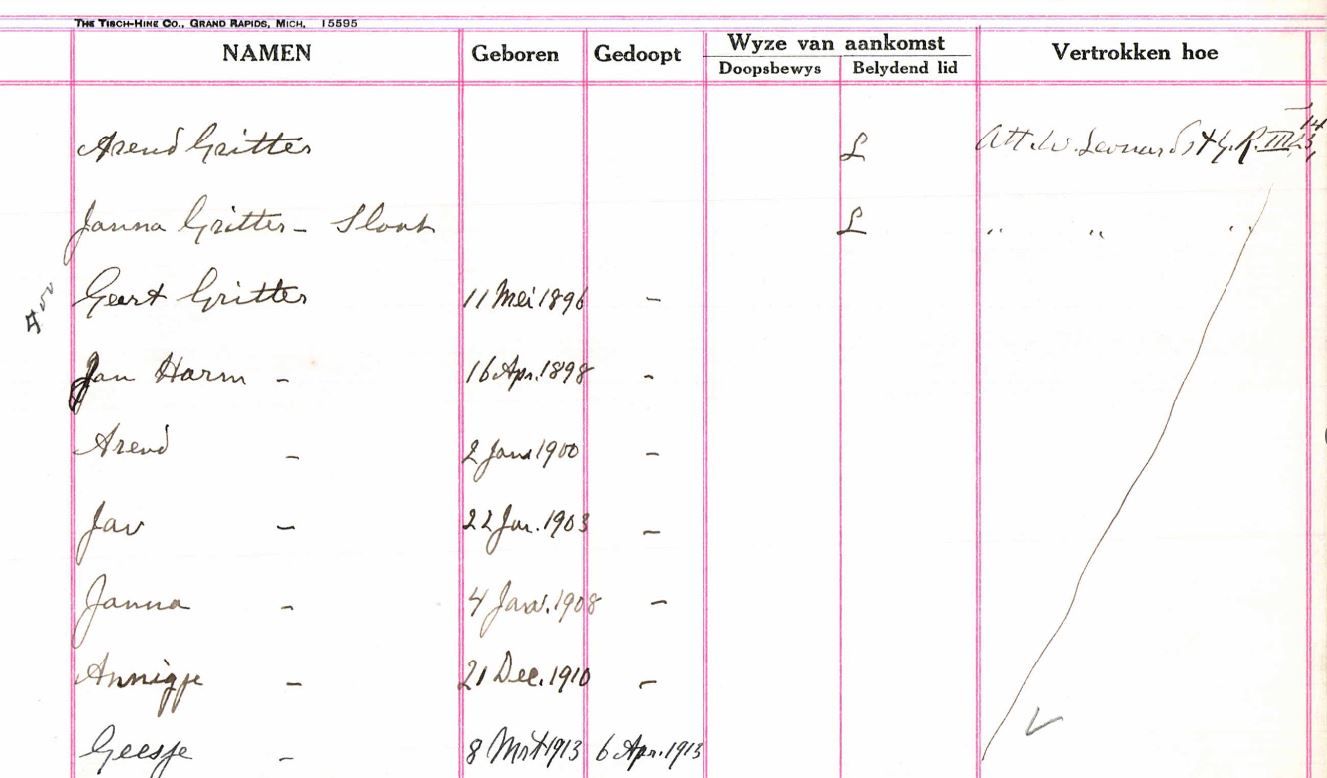 THE TISCH-HINE CO., GRAND RAPIDS, MICH. 15595
NAMEN Geboren Gedoopt Wyze van aankomst Vertrokken hoe
Doopsbewys Belydend lid
Arend Gritter £ Att. W. Leonard St G. R.
Janna Gritter - Sloot £ " " "
Geert Gritter 11 Mei 1896 -
Jan Harm - 16 Apr. 1898 -
Arend - 2 Jan 1900 -
Jan - 22 1903 -
Janna - 4 1908 -
Annigje - 21 Dec. 1910 -
Geesje - 8 Mrt 1913 6 Apr. 1913